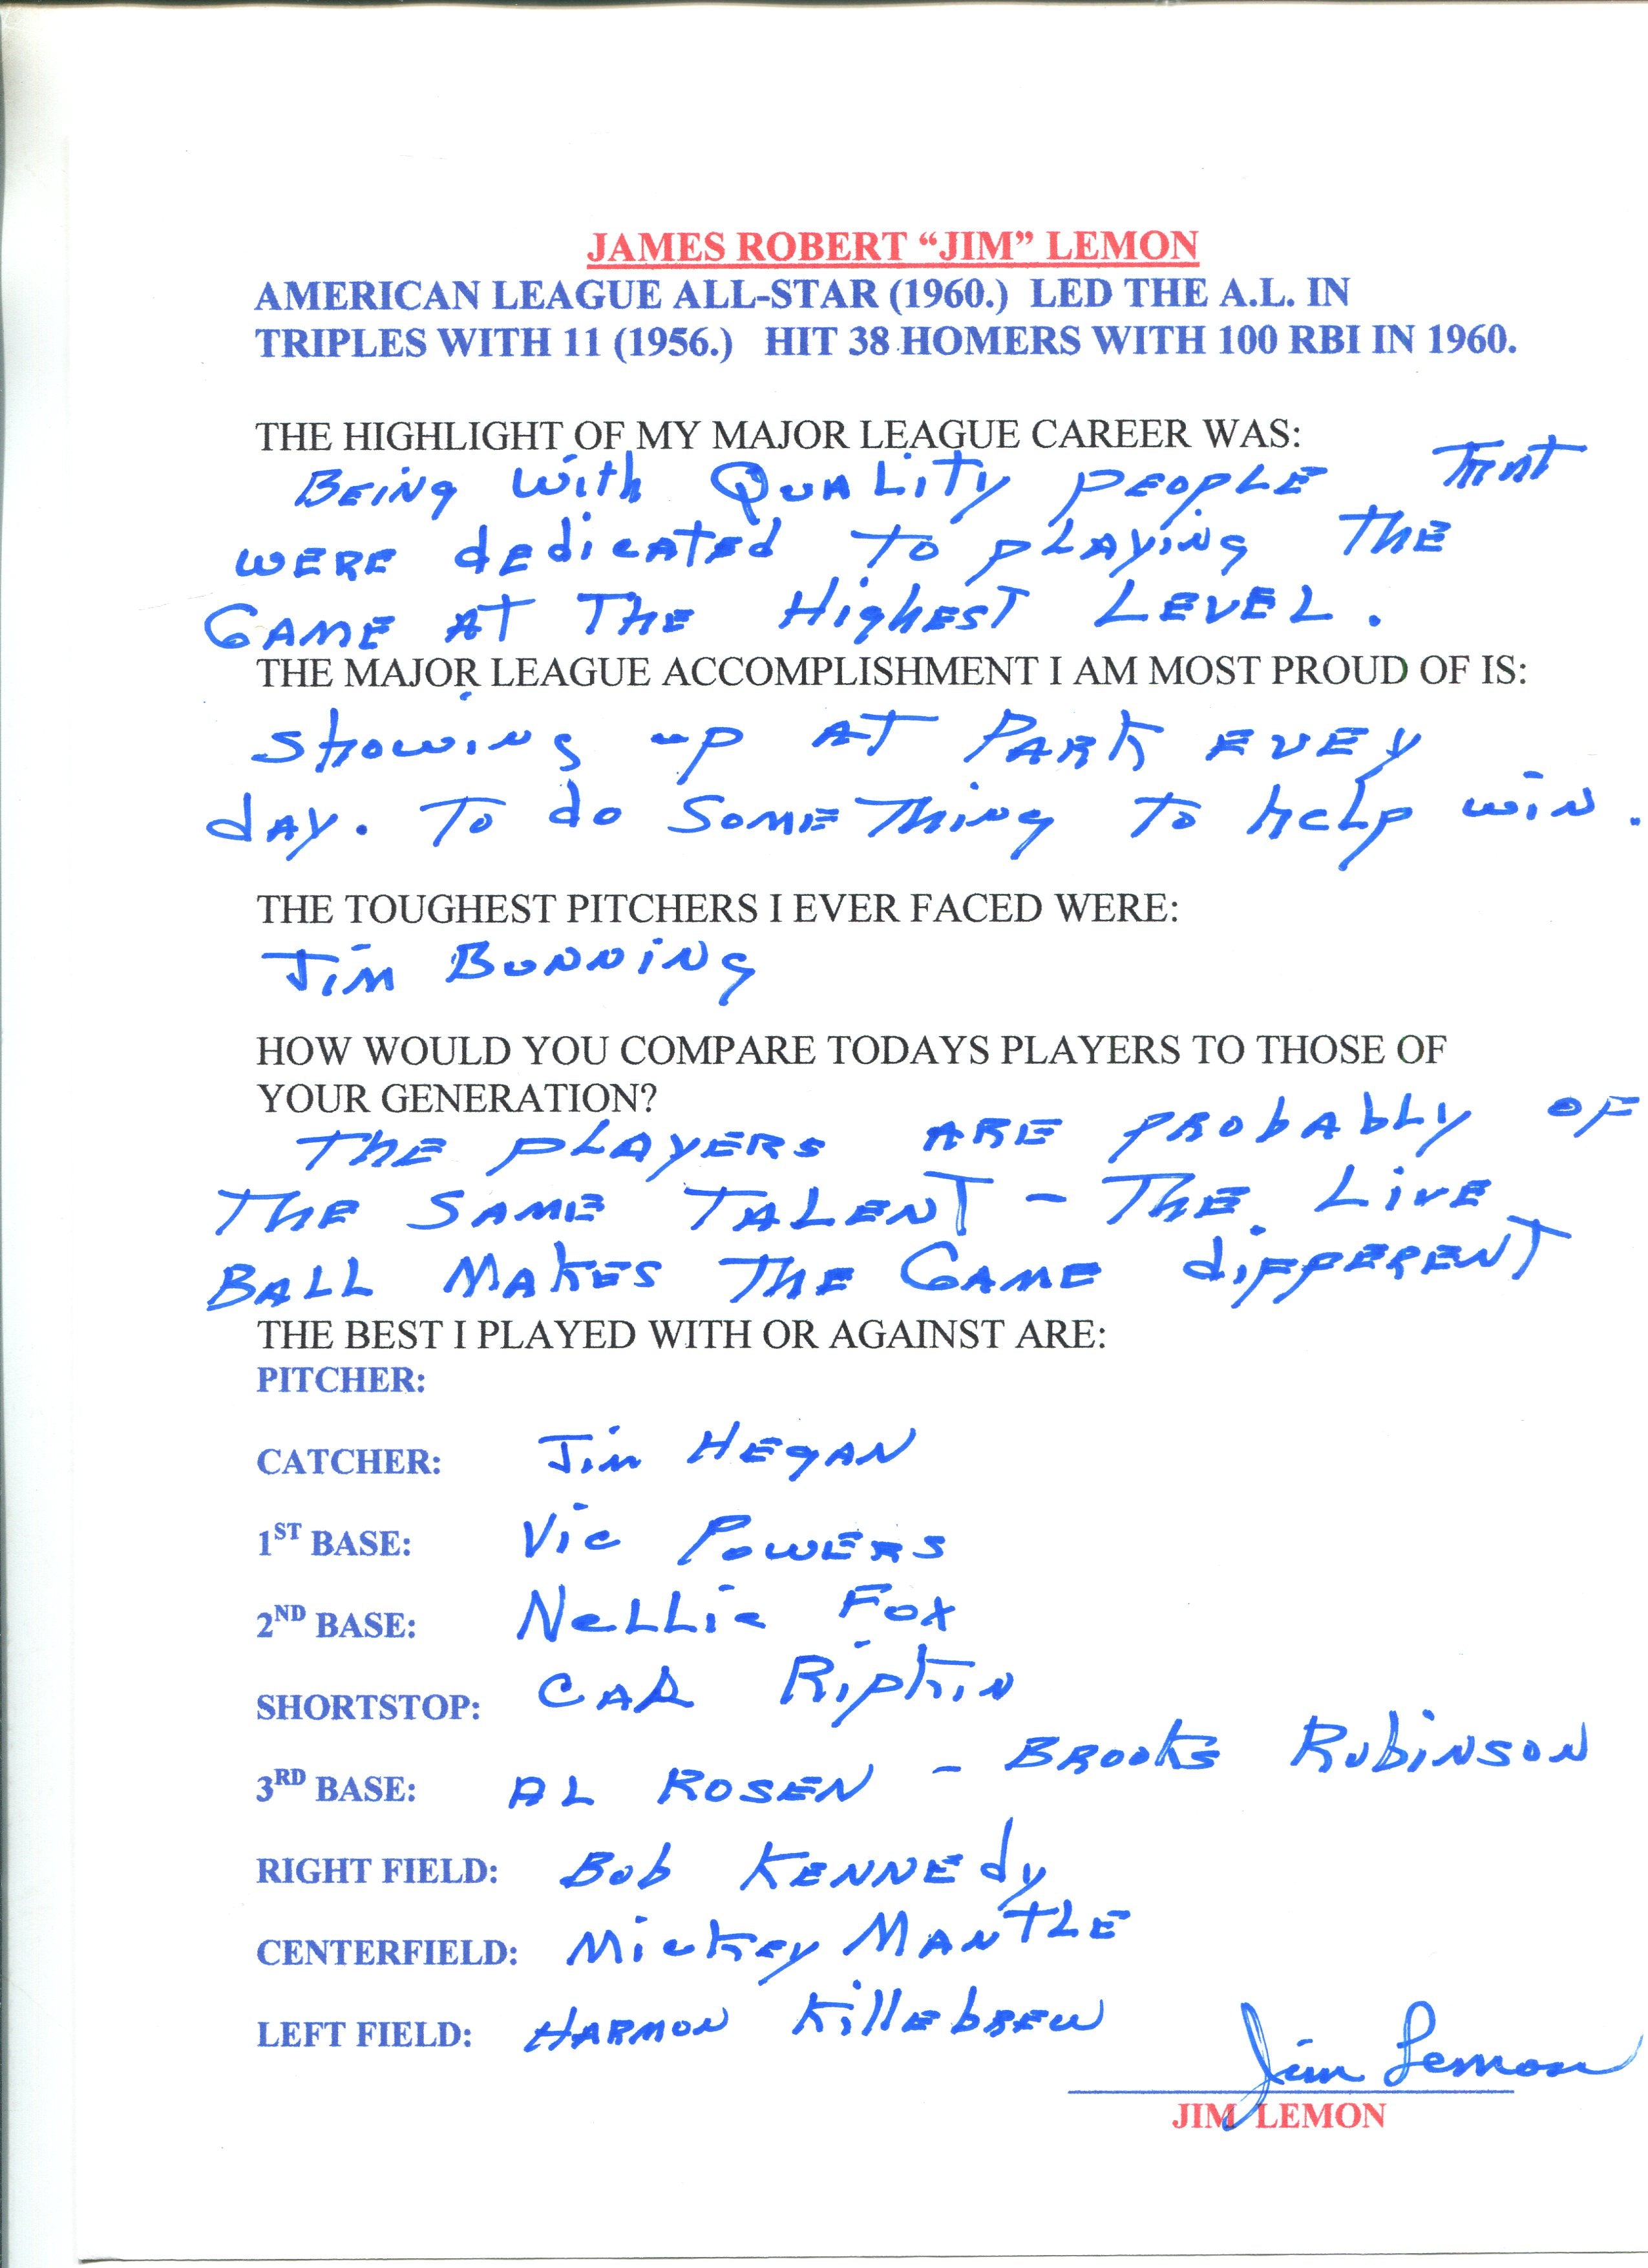 JAMES ROBERT “JIM” LEMON
AMERICAN LEAGUE ALL-STAR (1960.) LED THE A.L. IN
TRIPLES WITH 11 (1956.) HIT 38 HOMERS WITH 100 RBI IN 1960.
THE HIGHLIGHT OF MY MAJOR LEAGUE CAREER WAS:
BEiNg With QUALiTy PEOPLE THAT
WERE dEdicATEd TO pLAyiNg THE
GAME AT THE HighEST LEVEL.
THE MAJOR LEAGUE ACCOMPLISHMENT I AM MOST PROUD OF IS:
Showing up AT PARK EVEy
dAy. To do SOMEThing To heLp wiN.
THE TOUGHEST PITCHERS I EVER FACED WERE:
JiM BUNNiNg
HOW WOULD YOU COMPARE TODAYS PLAYERS TO THOSE OF
YOUR GENERATION?
THE PLAYERS ARE PRObAbLy OF
THE SAME TALENT – THE LiVE
BALL MAKES THE GAME diFFERENT
THE BEST I PLAYED WITH OR AGAINST ARE:
PITCHER:
CATCHER: Jim HEgAN
1ST BASE: Vic POWERS
2ND BASE: NeLLie FOX
SHORTSTOP: CAR RipkiN
3RD BASE: AL ROSEN – BROOKS RObiNSON
RIGHT FIELD: Bob KENNEdy
CENTERFIELD: MicKEy MANTLE
LEFT FIELD: HARMON KillEbREW
Jim Lemon
JIM LEMON